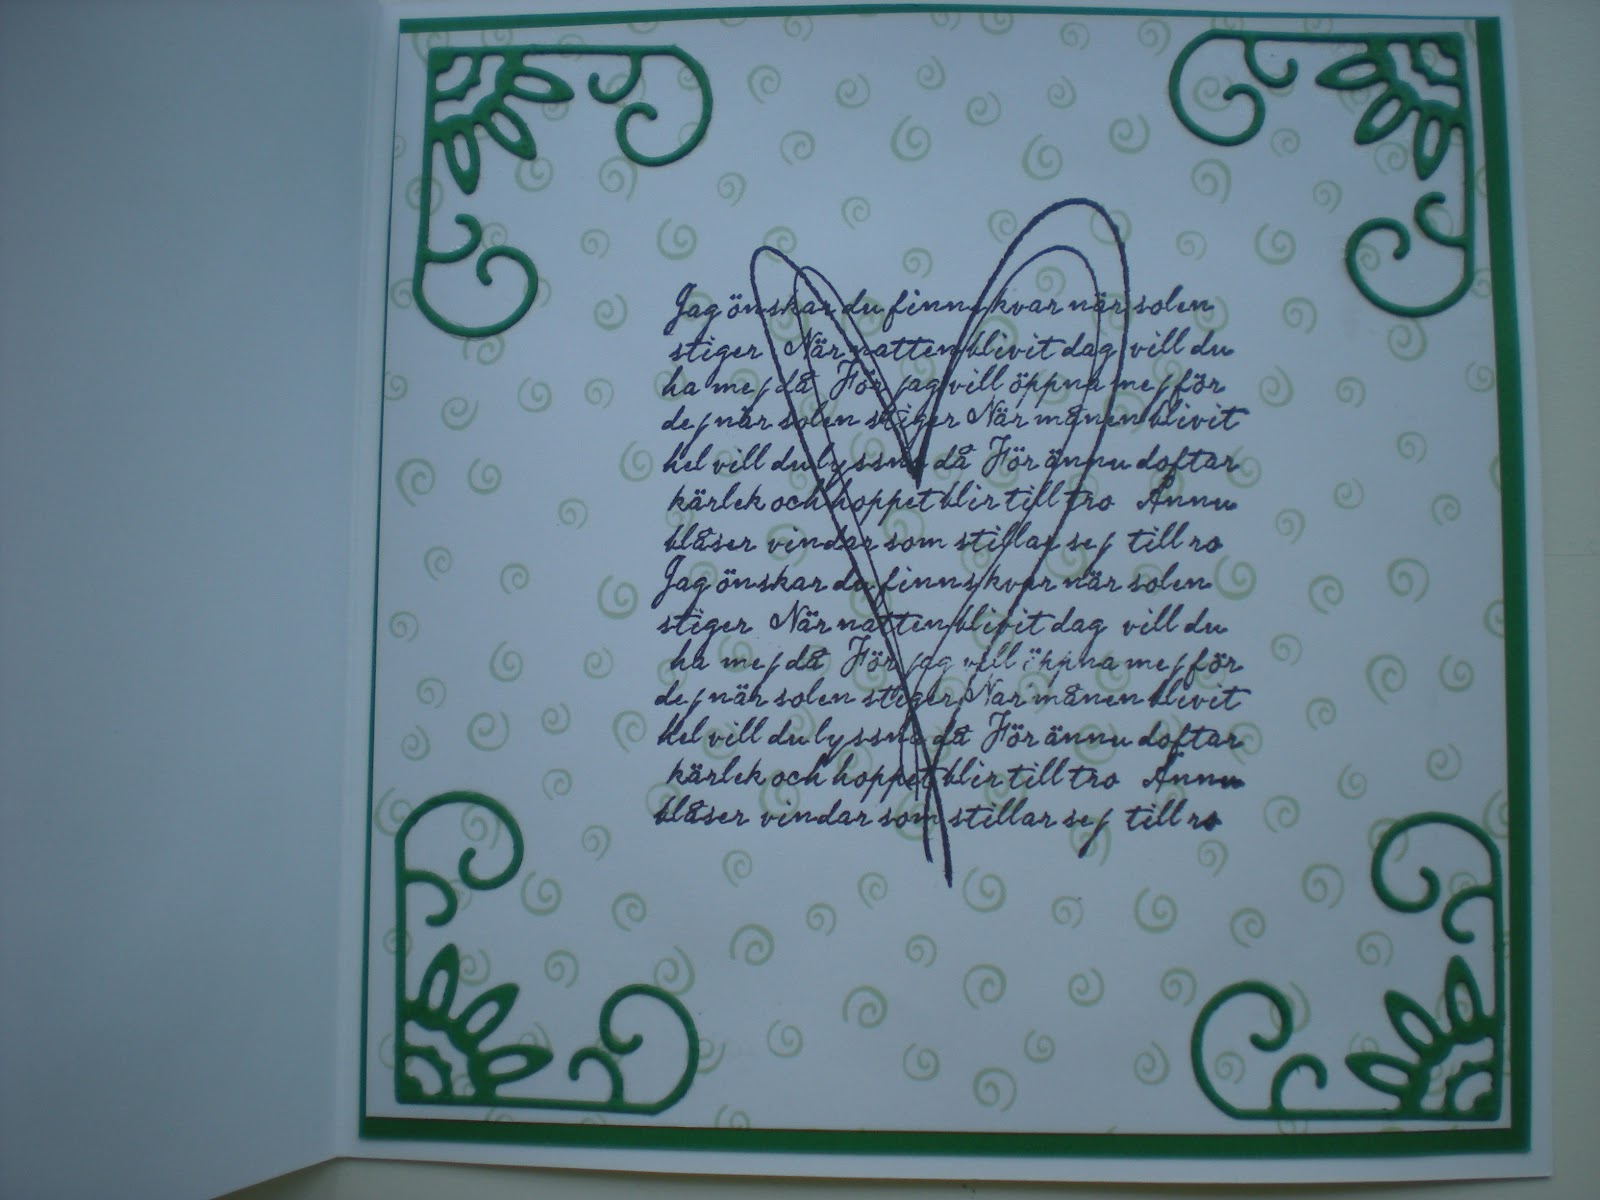 Jag önskar du finns kvar när solen
stiger När natten blivit dag vill du
ha mej då För jag vill öppna mej för
dej när solen stiger När månen blivit
hel vill du lyssna då För ännu doftar
kärlek och hoppet blir till tro Ännu
blåser vindar som stillar sej till ro
Jag önskar du finns kvar när solen
stiger När natten blivit dag vill du
ha mej då För jag vill öppna mej för
dej när solen stiger När månen blivit
hel vill du lyssna då För ännu doftar
kärlek och hoppet blir till tro Ännu
blåser vindar som stillar sej till ro